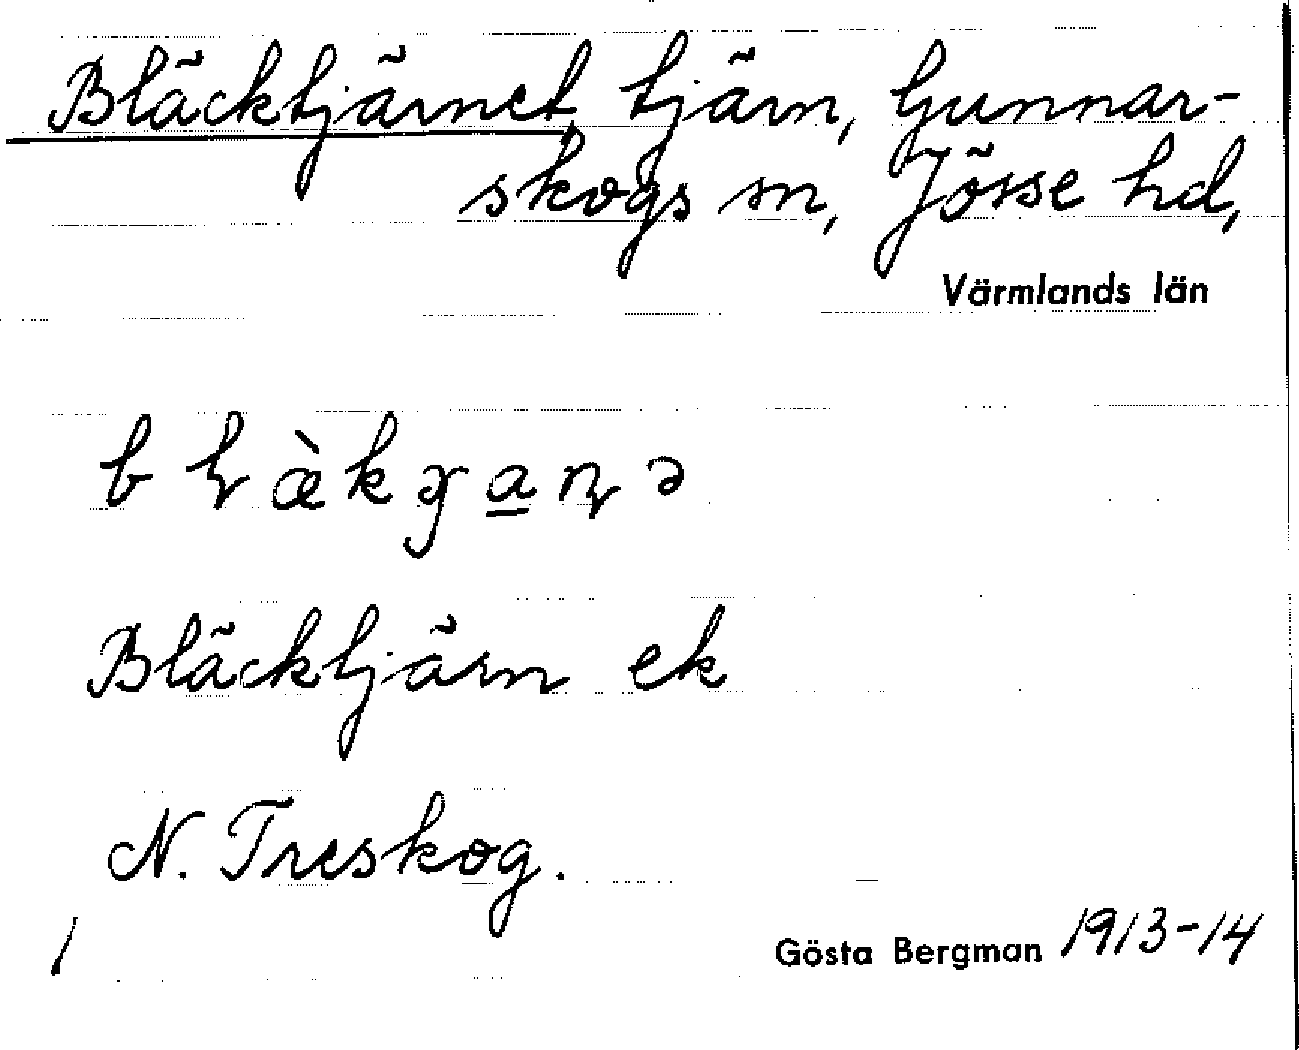 Bläcktjärnet, tjärn, Gunnar-
skogs sn, Jösse hd,
Värmlands län
Bläcktjärn ek
N. Treskog.
1
Gösta Bergman 1913-14